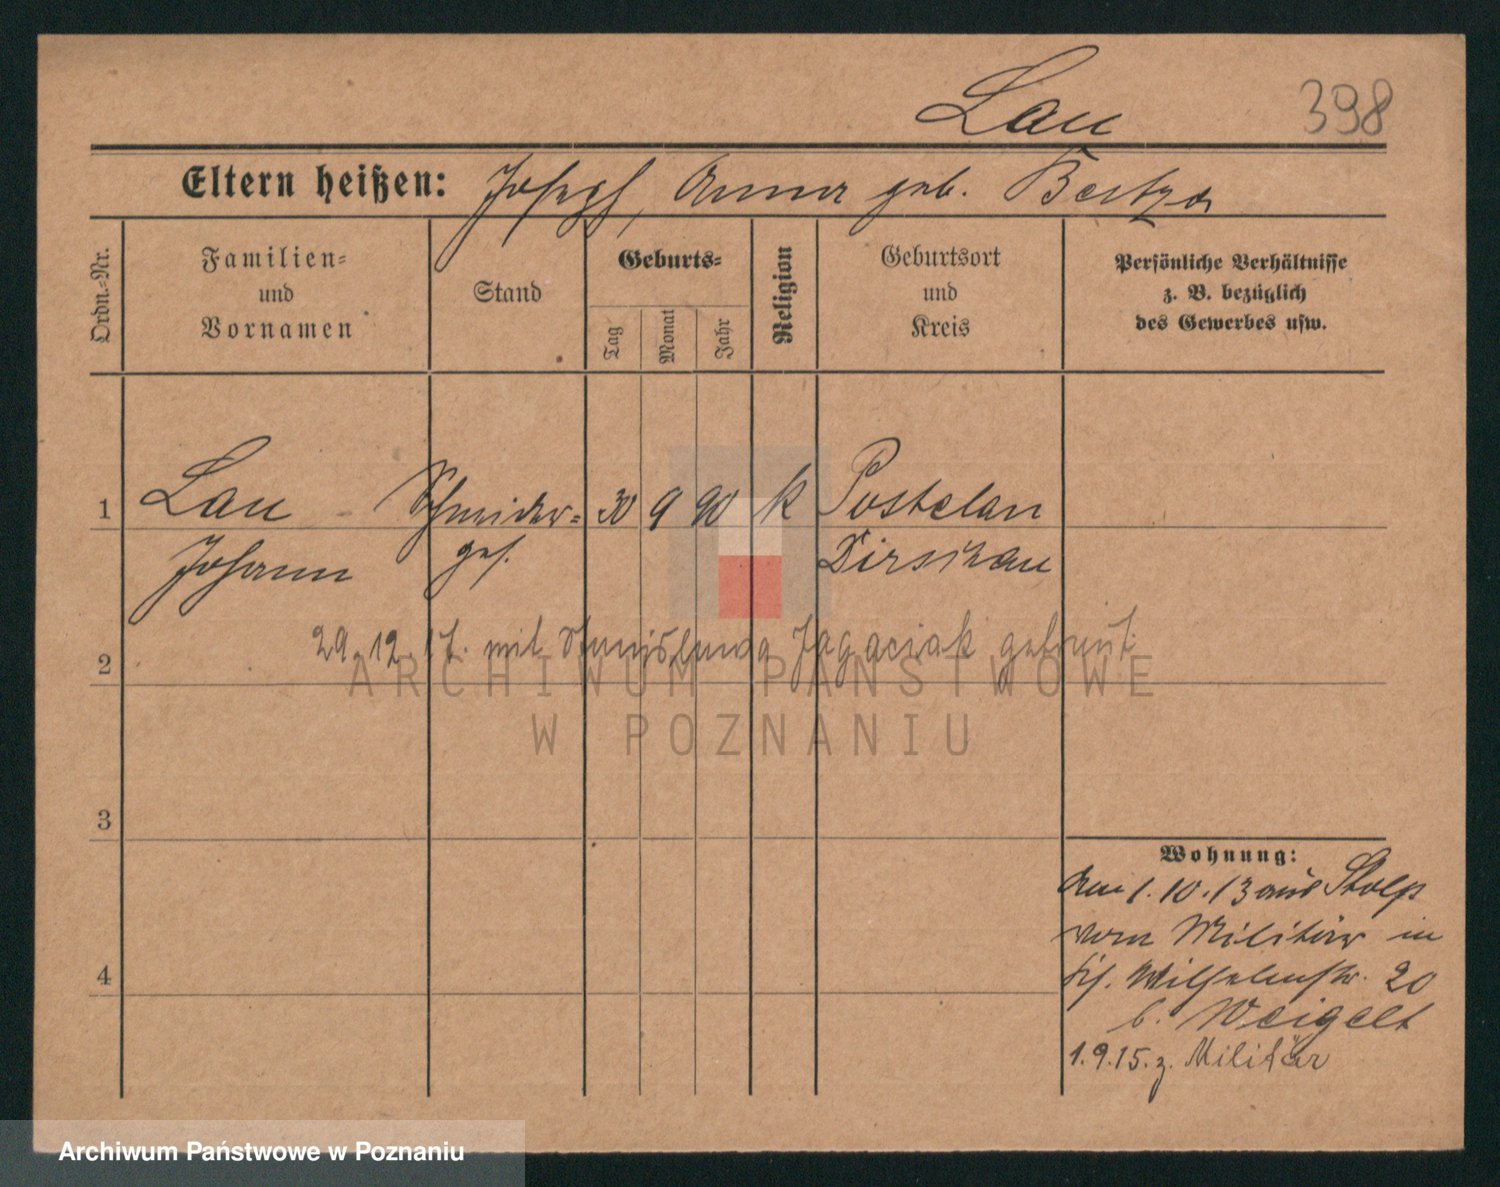 Lau 398
Eltern heißen: Joseph, Anna geb. Bertza
Ordn.-Nr.
Familien-
und
Vornamen
Stand
Geburts-
Tag
Monat
Jahr
Religion
Geburtsort
und
Kreis
Persönliche Verhältnisse
z. B. bezüglich
des Gewerbes usw.
1 Lau Schneider- 30 9 90 k Postelau
Johann ges. Dirschau
29.12.17. mit Stanislawa Jagaciak getraut
2
ARCHIWUM PAŃSTWOWE
W POZNANIU
3
Wohnung:
den 1.10.13 aus Stolp
vom Militär in
4
Wilhelmstr. 20
b. Weigelt
1.9.15. z. Militär
Archiwum Państwowe w Poznaniu